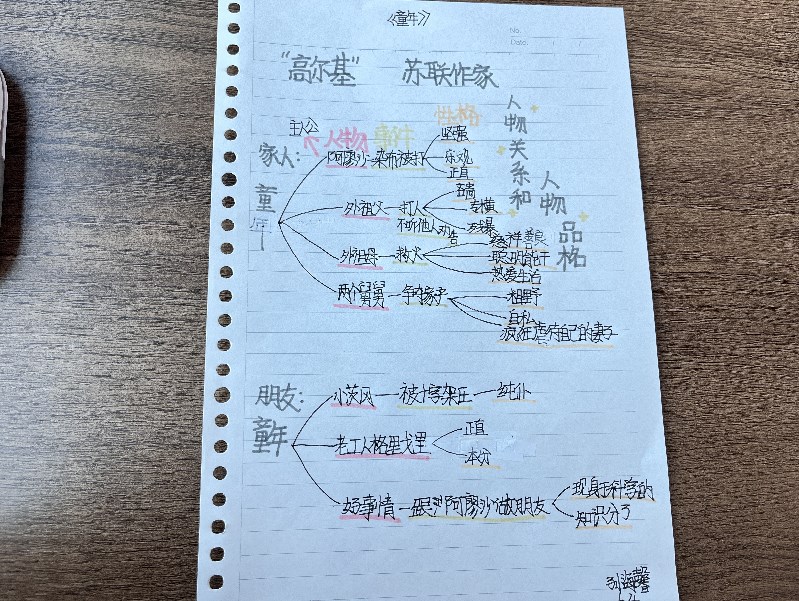 《童年》
No.
Date.
"高尔基" 苏联作家
人物关系和人物品格
主人公
人物 事件 性格
家人:
童年
阿廖沙 染布被打
坚强
乐观
正直
外祖父 打人
不听他人劝告
吝啬
专横
残暴
外祖母 救火
慈祥善良
聪明能干
热爱生活
两个舅舅 争夺家产
粗野
自私
疯狂虐待自己的妻子
朋友:
童年
小茨冈 被十字架压 纯朴
老工人格里戈里
正直
本分
好事情 跟阿廖沙做朋友
现身于科学的
知识分子